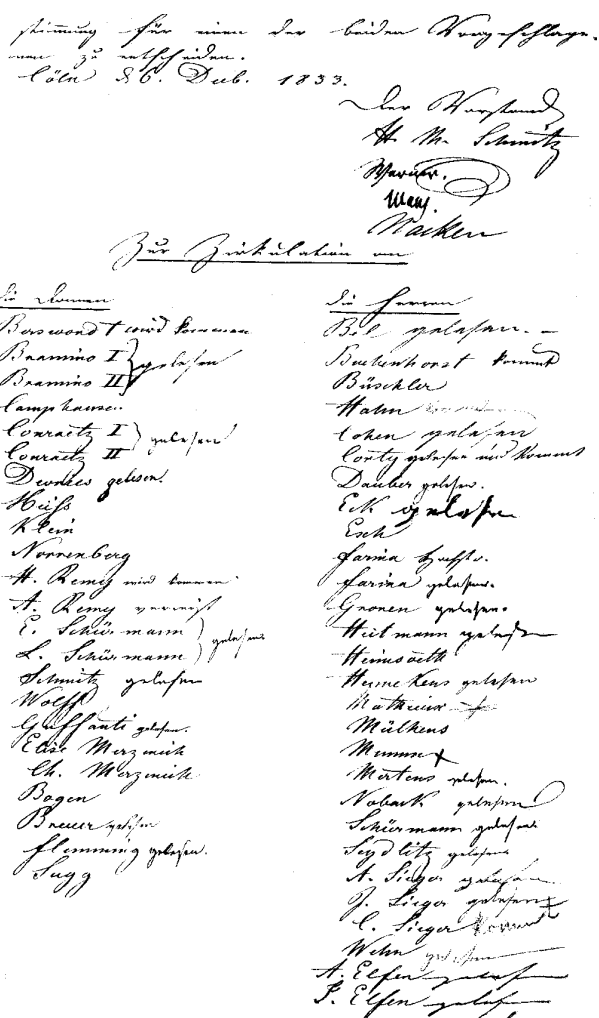 stimmung für einen der beiden Vorgeschlage-
nen zu entscheiden.
Cöln d 6. Deb. 1833.
Der Vorstand
H. M. Schmitz
Werner.
Nacken
Zur Zirkulation an
die Damen
Berswordt wird kommen
Bramino I
Bramino II gelesen
Camphausen
Conraetz I
Conraetz II gelesen
gelesen.
Heiss
Klein
Norrenberg
H. Remy wird kommen
A. Remy verreist
E. Schürmann
L. Schürmann gelesen
Schmitz gelesen
Wolff
Guffanti gelesen.
Elise Merzenich
Ch. Merzenich
Bogen
Breuer gelesen
Flemming gelesen.
Sugg
die Herren
Bel gelesen. –
Buchenhorst kommt
Büschler
Hahn
Cohen gelesen
Conty gelesen und kommt
Dauber gelesen.
Eck gelesen
Esch
Farina
Farina gelesen.
Gronen gelesen.
Heitmann gelesen
Heimsoeth
Heinekens gelesen
Mathieux
Mülhens
Mumm
Mertens gelesen.
Noback gelesen
Schürmann gelesen
Seydlitz gelesen
A. Sieger gelesen
J. Sieger gelesen
C. Sieger kommt
Wehn gelesen
A. Elfen gelesen
P. Elfen gelesen